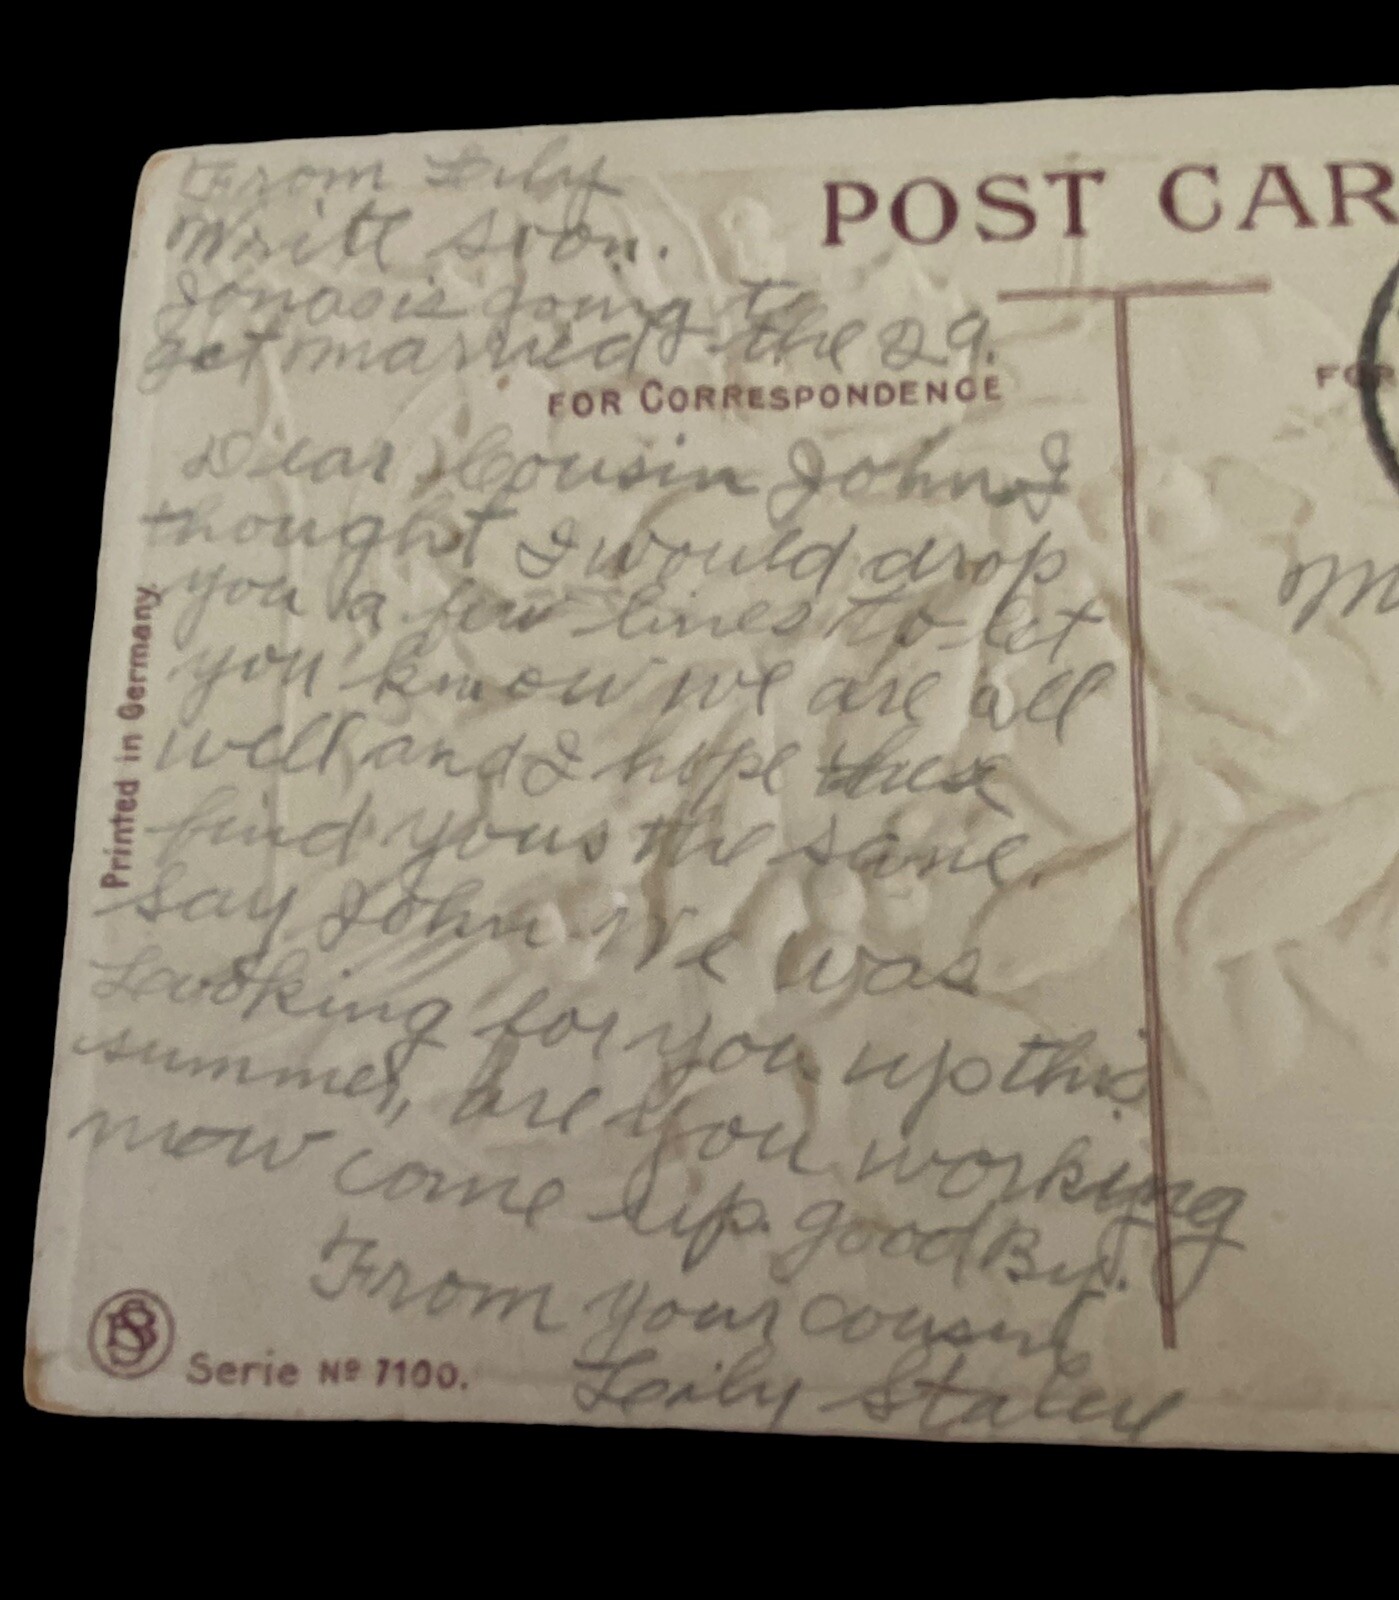 From Lily
Write soon.
Jonas is going to
get married the 29.
POST CAR
FOR CORRESPONDENCE
FOR
Dear Cousin John I
thought I would drop
you a few lines to let
you know we are all
well and I hope these
find yous the same.
say John We was
Looking for you up this
summer, are you working
now come up. good By.
From your cousin
Lily Staley
M
Printed in Germany.
BS
Serie Nº 7100.